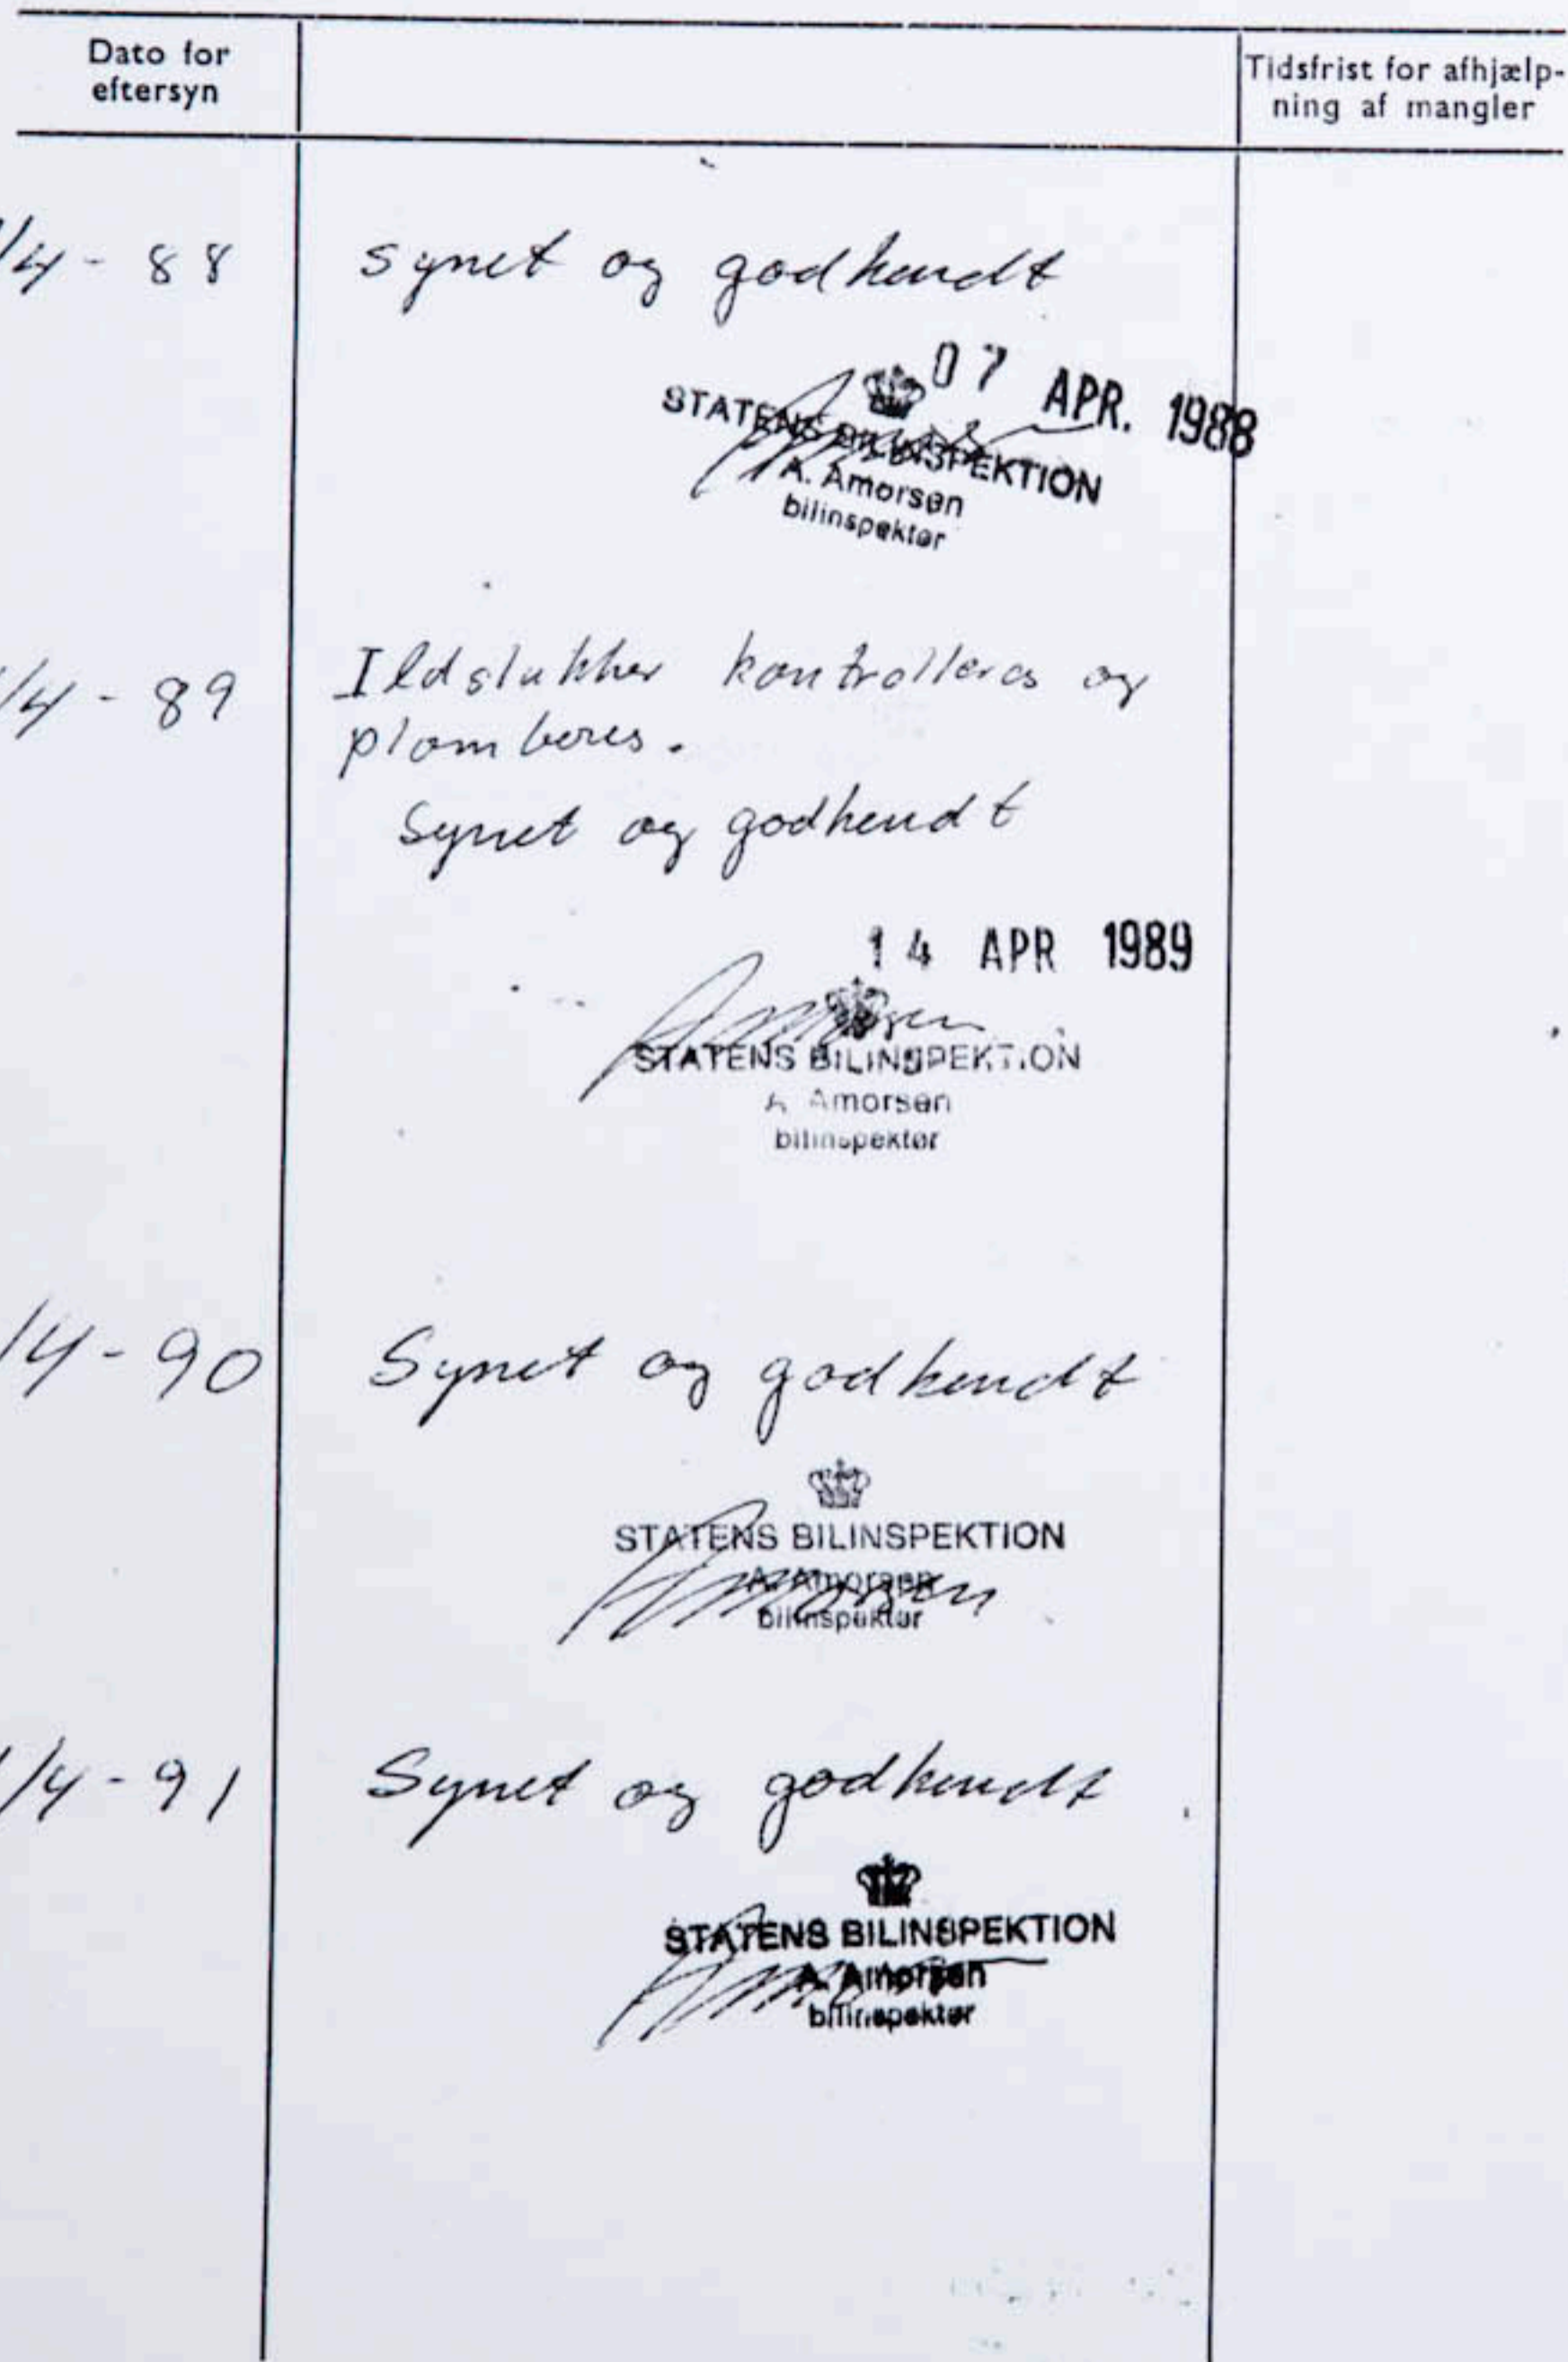 Dato for
eftersyn
Tidsfrist for afhjælp-
ning af mangler
/4 - 88
synet og godkendt
07 APR. 1988
STATENS BILINSPEKTION
A. Amorsen
bilinspektør
/4 - 89
Ildslukker kontrolleres og
plomberes.
Synet og godkendt
14 APR 1989
Amorsen
STATENS BILINSPEKTION
A. Amorsen
bilinspektør
/4 - 90
Synet og godkendt
STATENS BILINSPEKTION
A. Amorsen
Amorsen
bilinspektør
/4 - 91
Synet og godkendt
STATENS BILINSPEKTION
A. Amorsen
bilinspektør